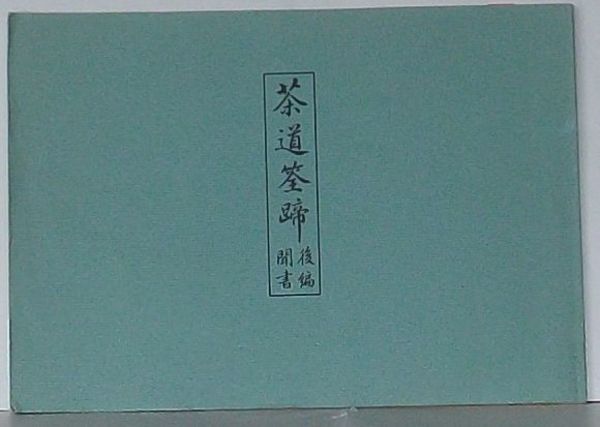 茶道筌蹄
後編
聞書